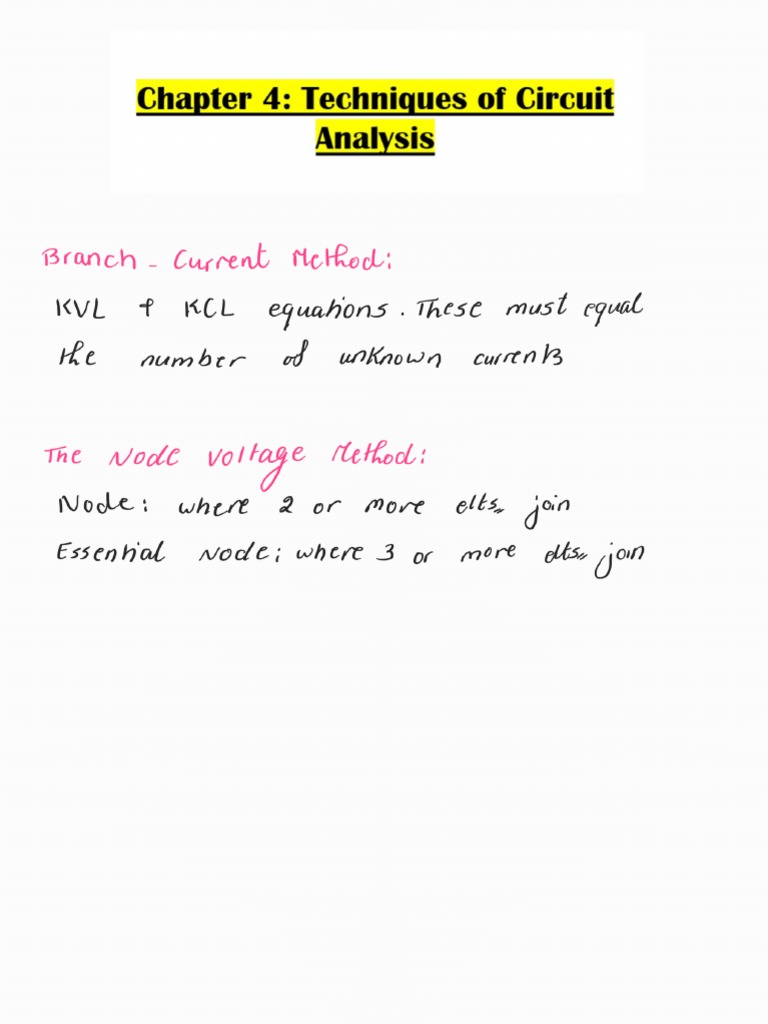 Chapter 4: Techniques of Circuit
Analysis
Branch - Current Method:
KVL & KCL equations. These must equal
the number of unknown currents
The Node Voltage Method:
Node: where 2 or more elts, join
Essential Node: where 3 or more elts, join